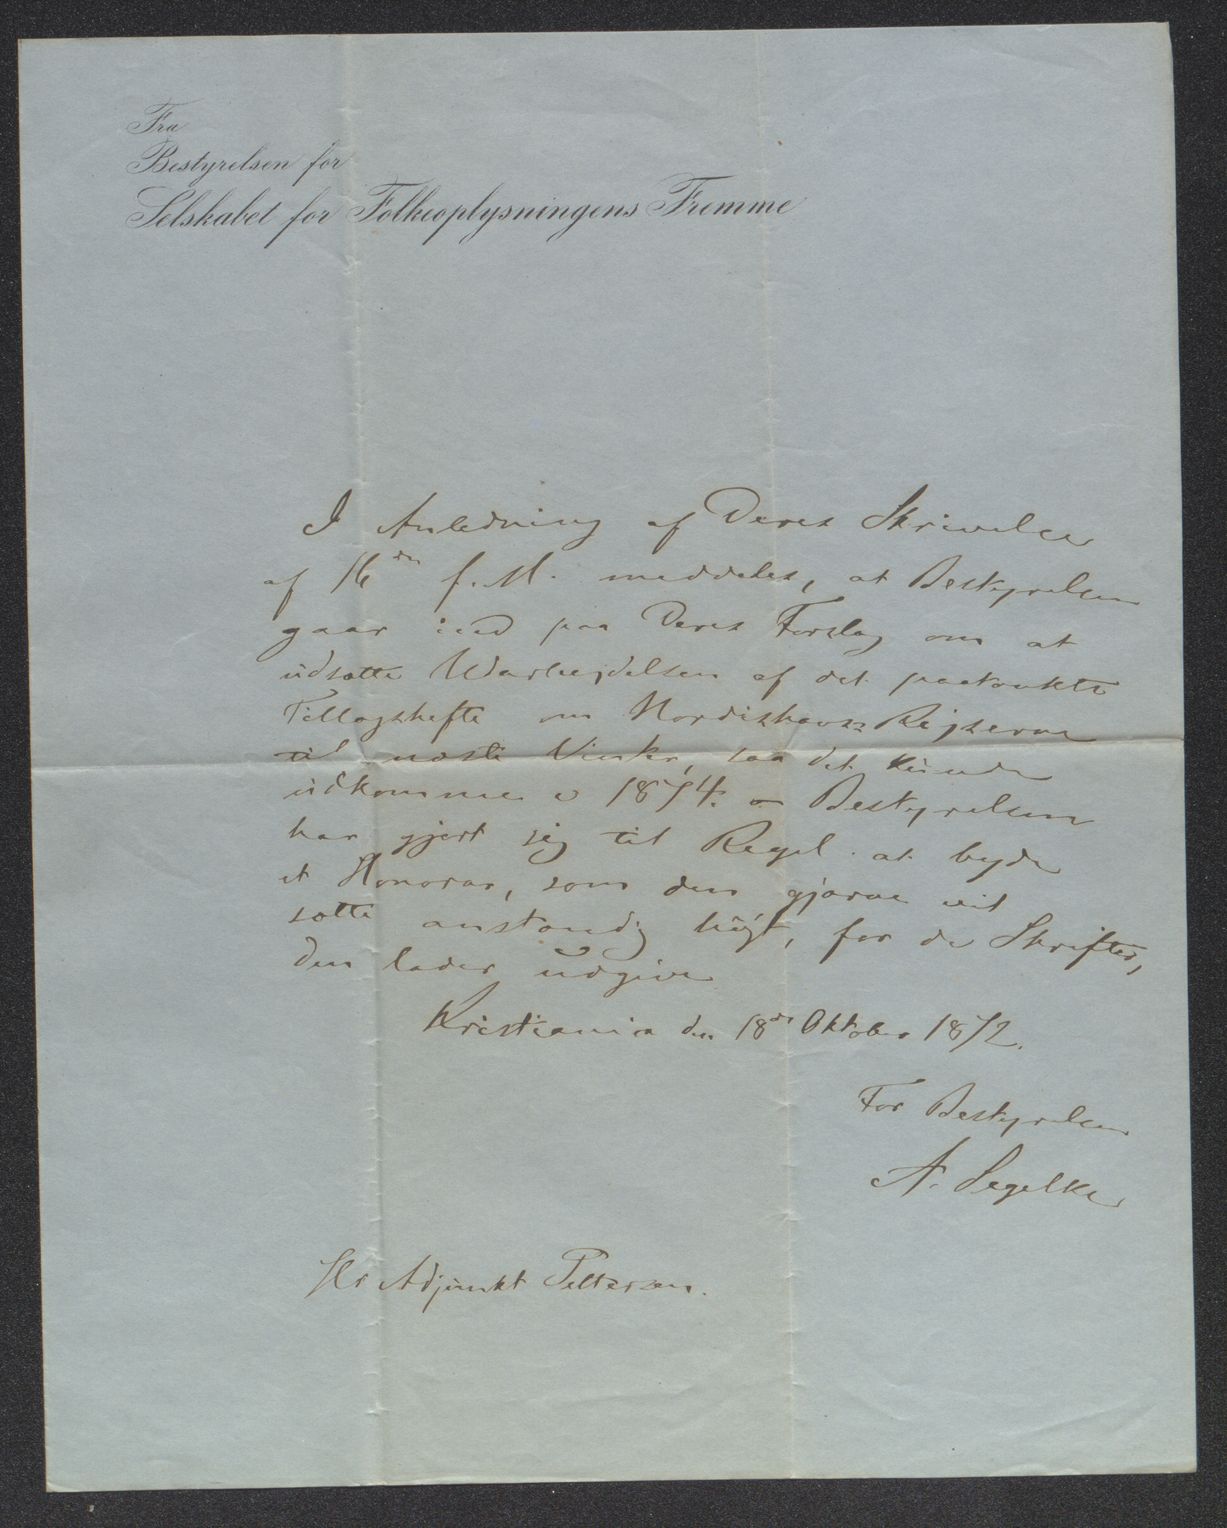 Fra
Bestyrelsen for
Selskabet for Folkeoplysningens Fremme
I Anledning af Deres Skrivelse
af 16de f. M. meddeles, at Bestyrelsen
gaar ind paa Deres Forslag om at
udsætte Udarbejdelsen af det paatænkte
Tillægshefte om Nordishavs-Rejserne
til næste Vinter, saa det kunde
udkomme i 1874. – Bestyrelsen
har gjort sig til Regel at byde
et Honorar, som den gjærne vil
sætte anstændig højt, for de Skrifter,
den lader udgive
Kristiania den 18de Oktober 1872.
For Bestyrelsen
A. Segelke
Hr Adjunkt Pettersen.